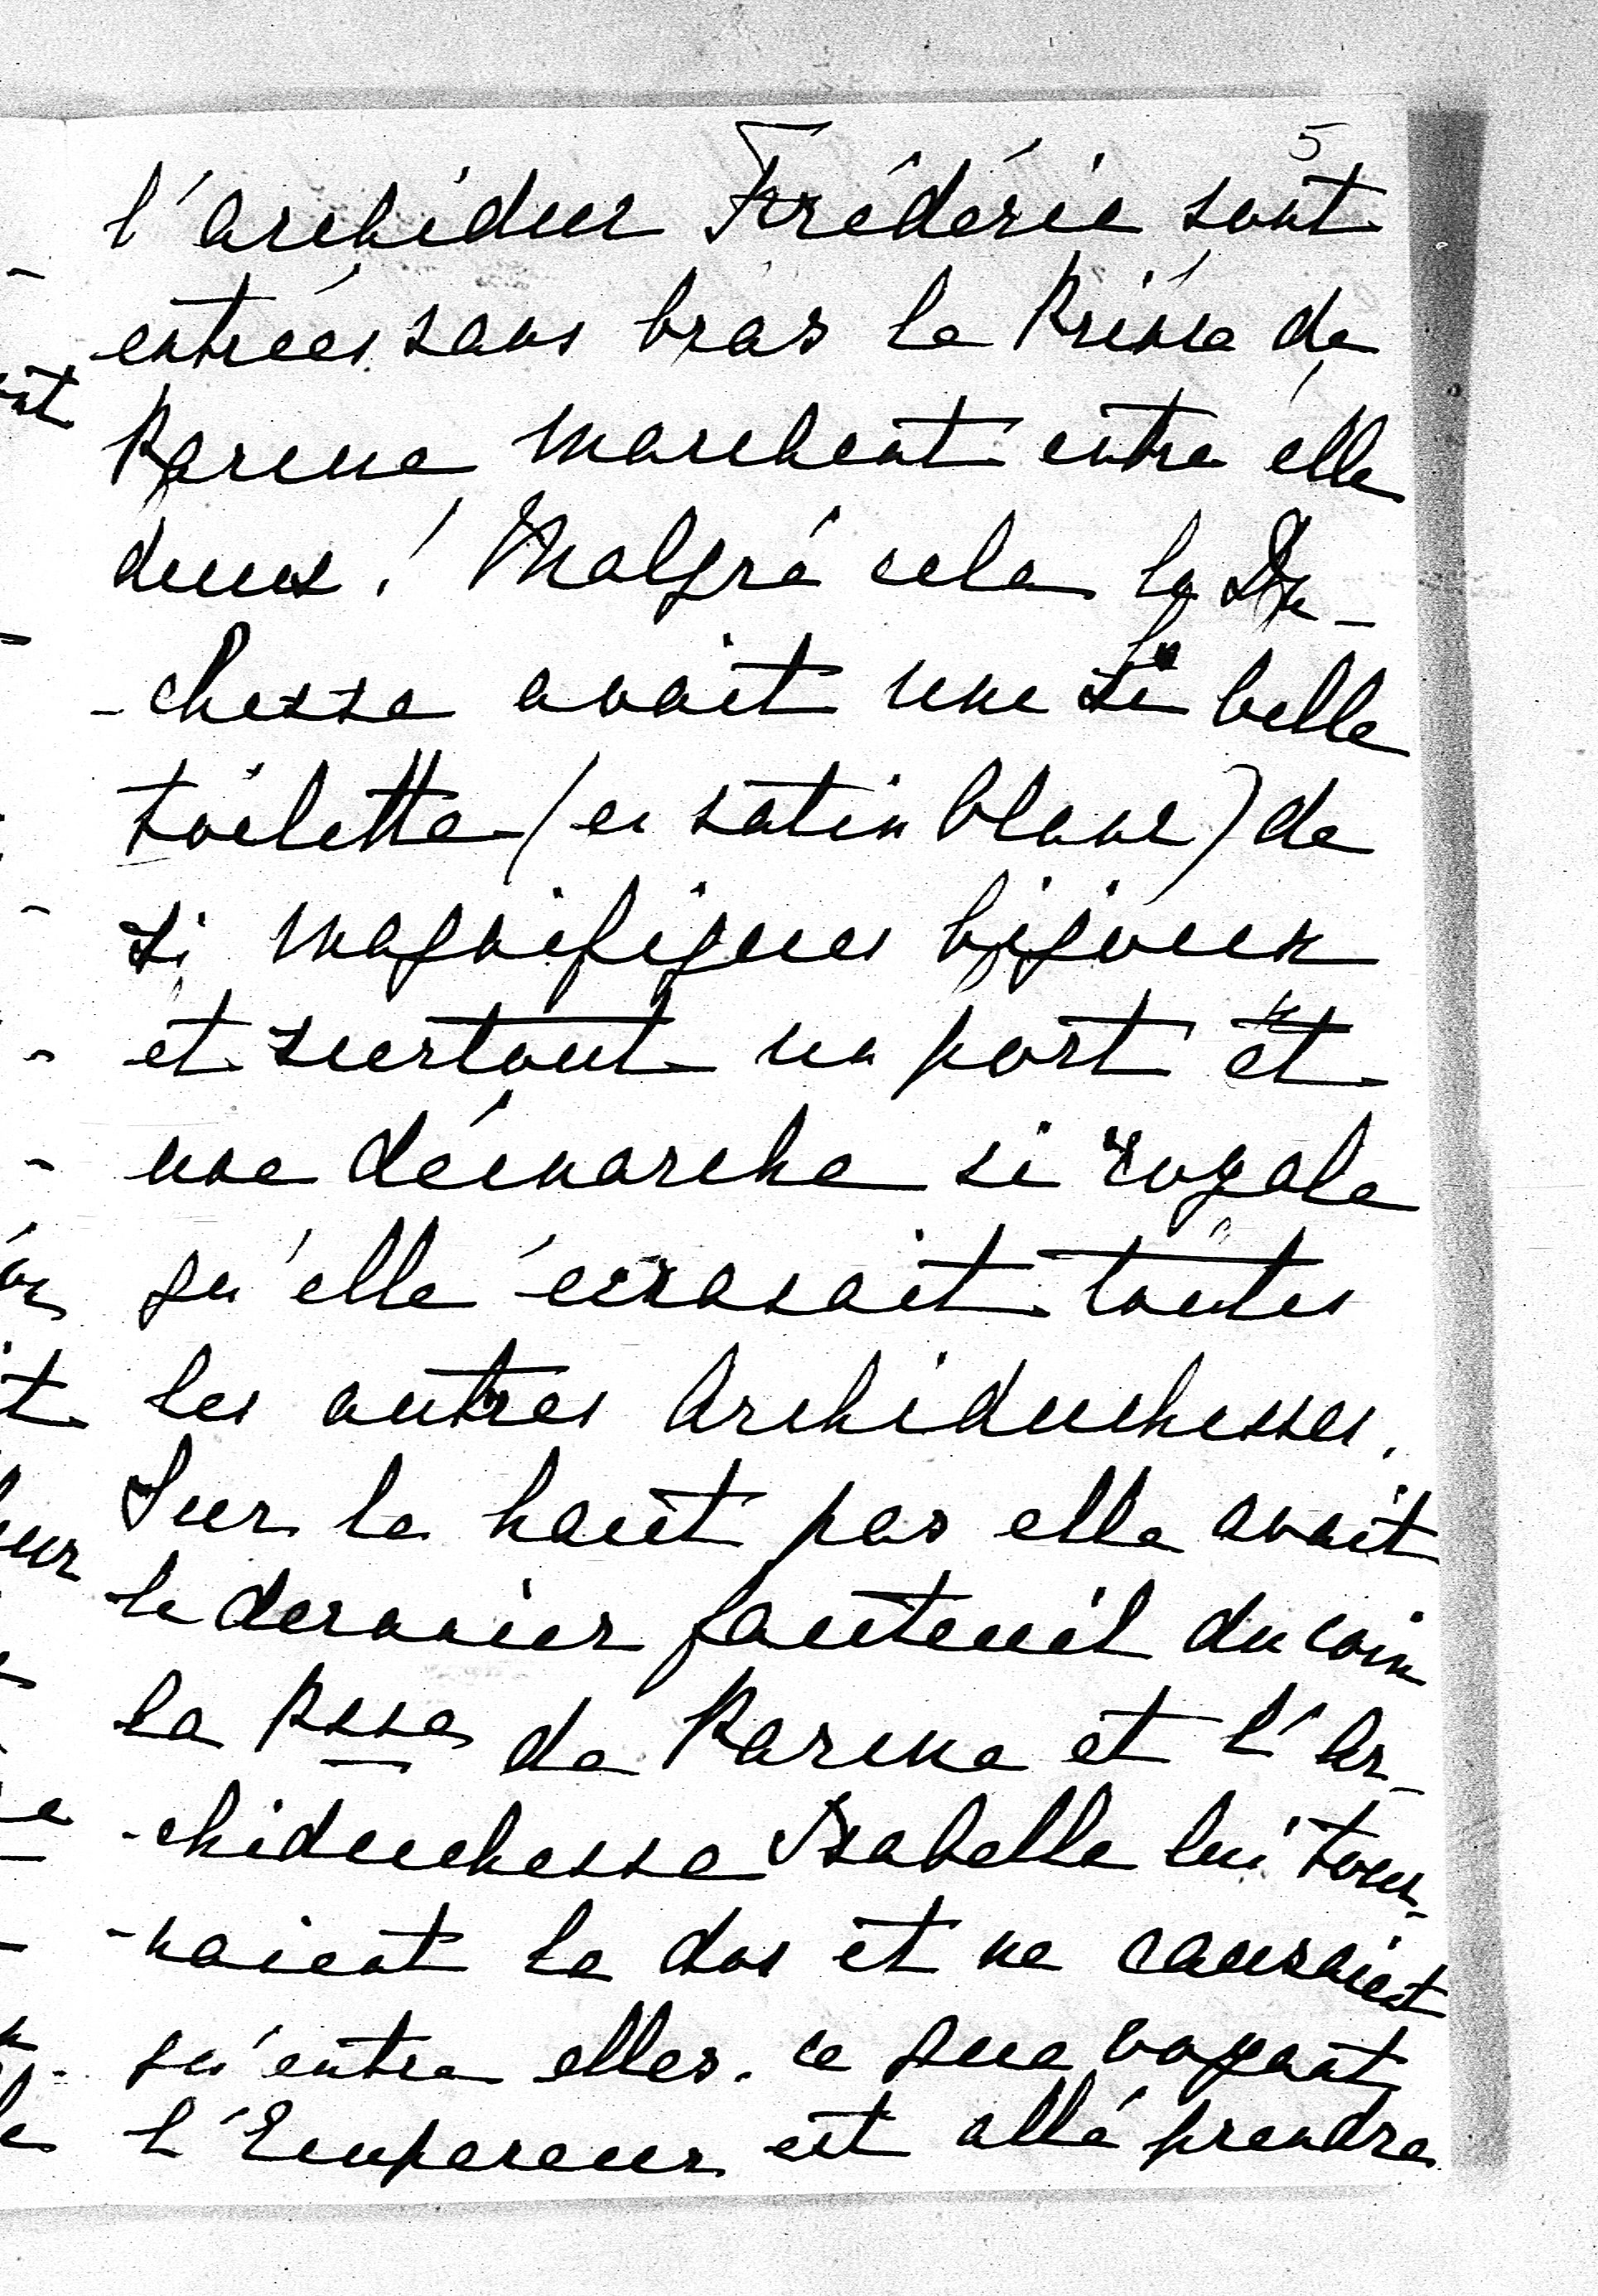 5
l'archiduc Frédéric sont
entrées sans bras le Prince de
Parme marchant entre elle
deux! Malgré cela la Du-
-chesse avait une si belle
toilette (en satin blanc) de
si magnifiques bijoux
et surtout un port et
une démarche si royale
qu'elle écrasait toutes
les autres Archiduchesses.
Sur le haut pas elle avait
le dernier fauteuil du coin
la Psse de Parme et l'Ar-
-chiduchesse Isabelle lui tour-
-naient le dos et ne causaient
qu'entre elles. ce que voyant
l'Empereur est allé prendre